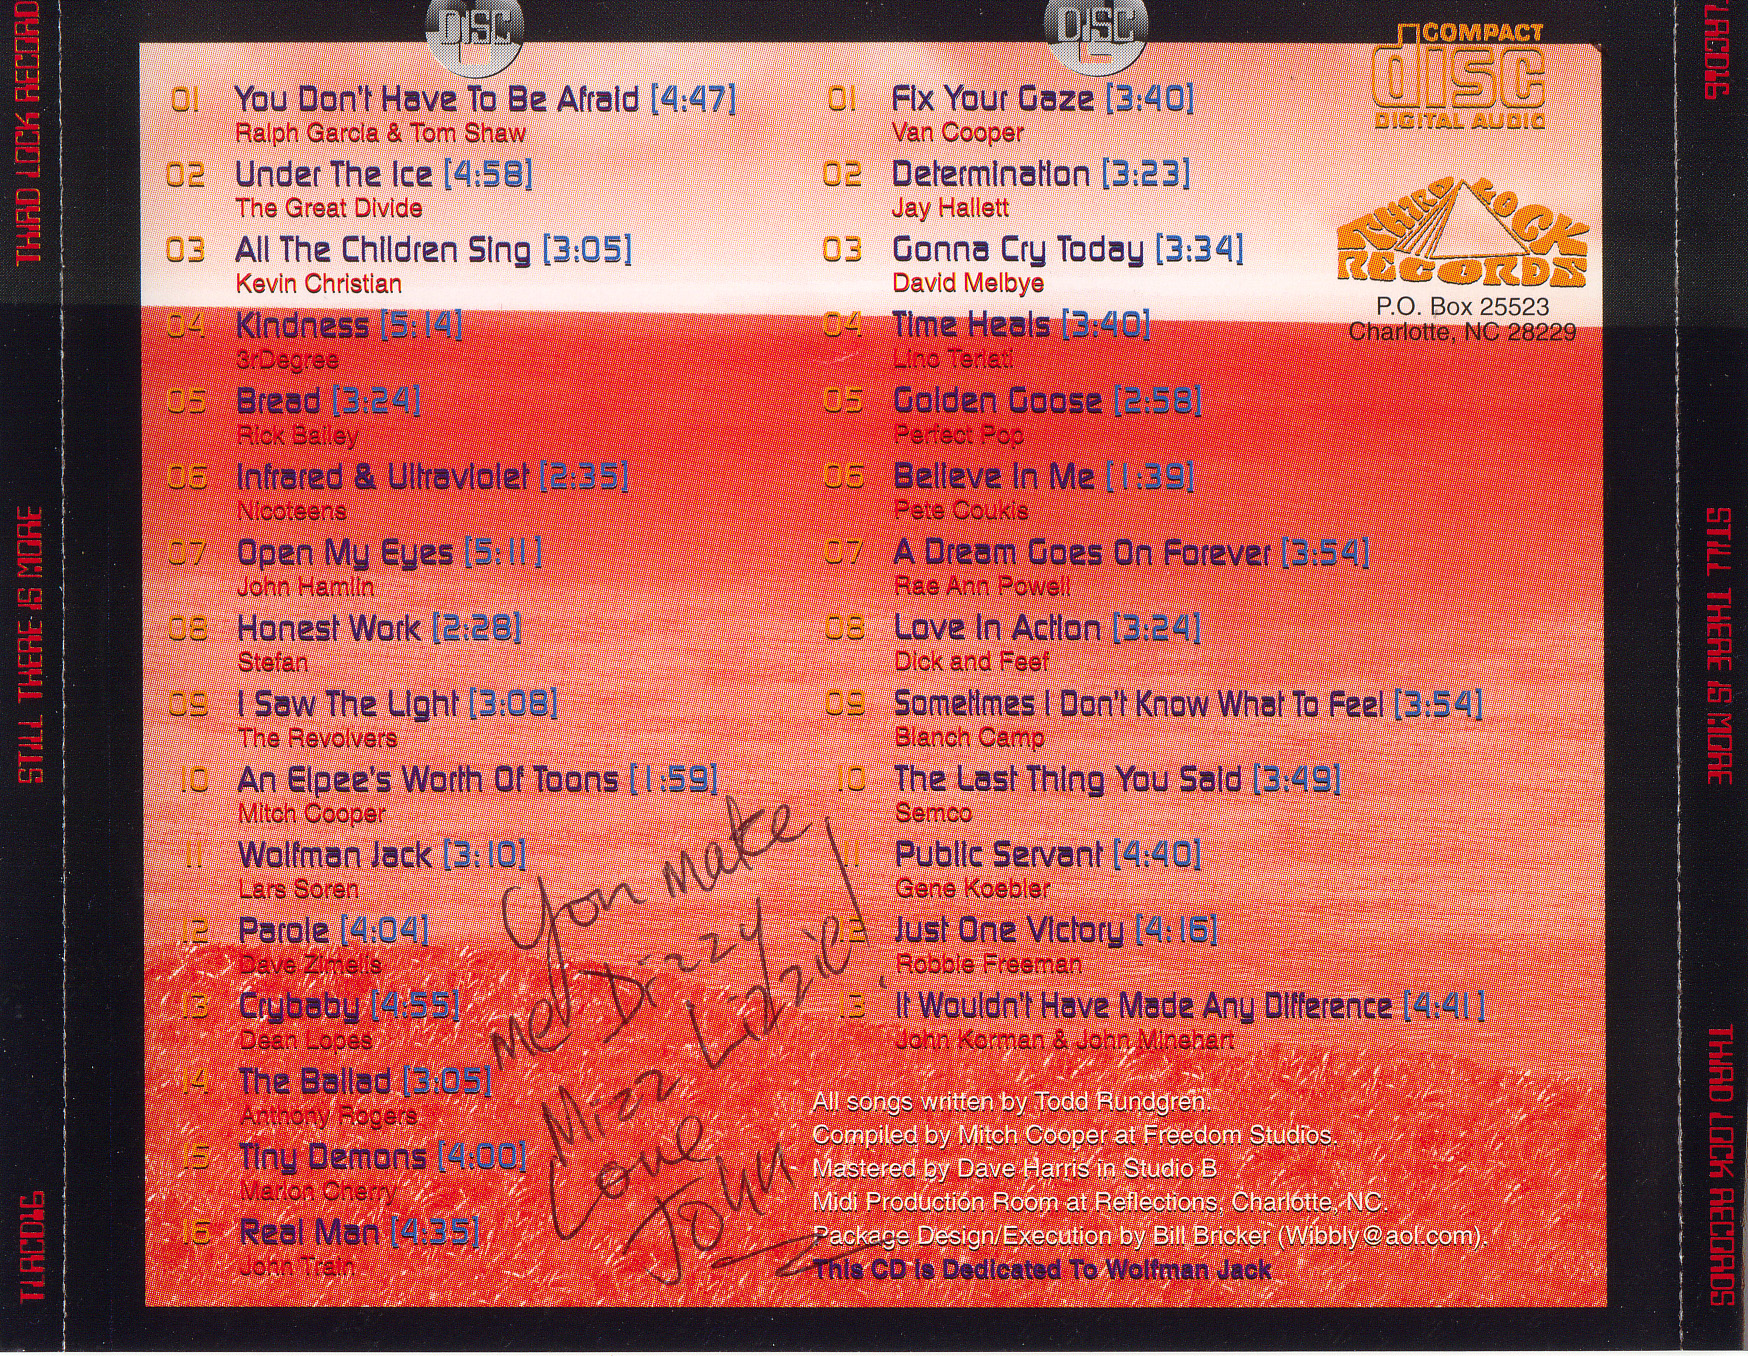 DISC
01 You Don't Have To Be Afraid [4:47]
Ralph Garcia & Tom Shaw
02 Under The Ice [4:58]
The Great Divide
03 All The Children Sing [3:05]
Kevin Christian
04 Kindness [5:14]
3rDegree
05 Bread [3:24]
Rick Bailey
06 Infrared & Ultraviolet [2:35]
Nicoteens
07 Open My Eyes [5:11]
John Hamlin
08 Honest Work [2:28]
Stefan
09 I Saw The Light [3:08]
The Revolvers
10 An Elpee's Worth Of Toons [1:59]
Mitch Cooper
11 Wolfman Jack [3:10]
Lars Soren
12 Parole [4:04]
Dave Zimelis
13 Crybaby [4:55]
Dean Lopes
14 The Ballad [3:05]
Anthony Rogers
15 Tiny Demons [4:00]
Marlon Cherry
16 Real Man [4:35]
John Train
DISC
01 Fix Your Gaze [3:40]
Van Cooper
02 Determination [3:23]
Jay Hallett
03 Gonna Cry Today [3:34]
David Melbye
04 Time Heals [3:40]
Lino Terlati
05 Golden Goose [2:58]
Perfect Pop
06 Believe In Me [1:39]
Pete Coukis
07 A Dream Goes On Forever [3:54]
Rae Ann Powell
08 Love In Action [3:24]
Dick and Feef
09 Sometimes I Don't Know What To Feel [3:54]
Blanch Camp
10 The Last Thing You Said [3:49]
Semco
11 Public Servant [4:40]
Gene Koebler
12 Just One Victory [4:16]
Robbie Freeman
13 It Wouldn't Have Made Any Difference [4:41]
John Korman & John Minehart
All songs written by Todd Rundgren.
Compiled by Mitch Cooper at Freedom Studios.
Mastered by Dave Harris in Studio B
Midi Production Room at Reflections, Charlotte, NC.
Package Design/Execution by Bill Bricker (Wibbly@aol.com).
This CD is Dedicated To Wolfman Jack
COMPACT
disc
DIGITAL AUDIO
THIRD ROCK
RECORDS
P.O. Box 25523
Charlotte, NC 28229
You make
me Dizzy
Mizz Lizzie!
Love
John
THIRD ROCK RECORD
STILL THERE IS MORE
TLRCD16
STILL THERE IS MORE
THIRD ROCK RECORDS